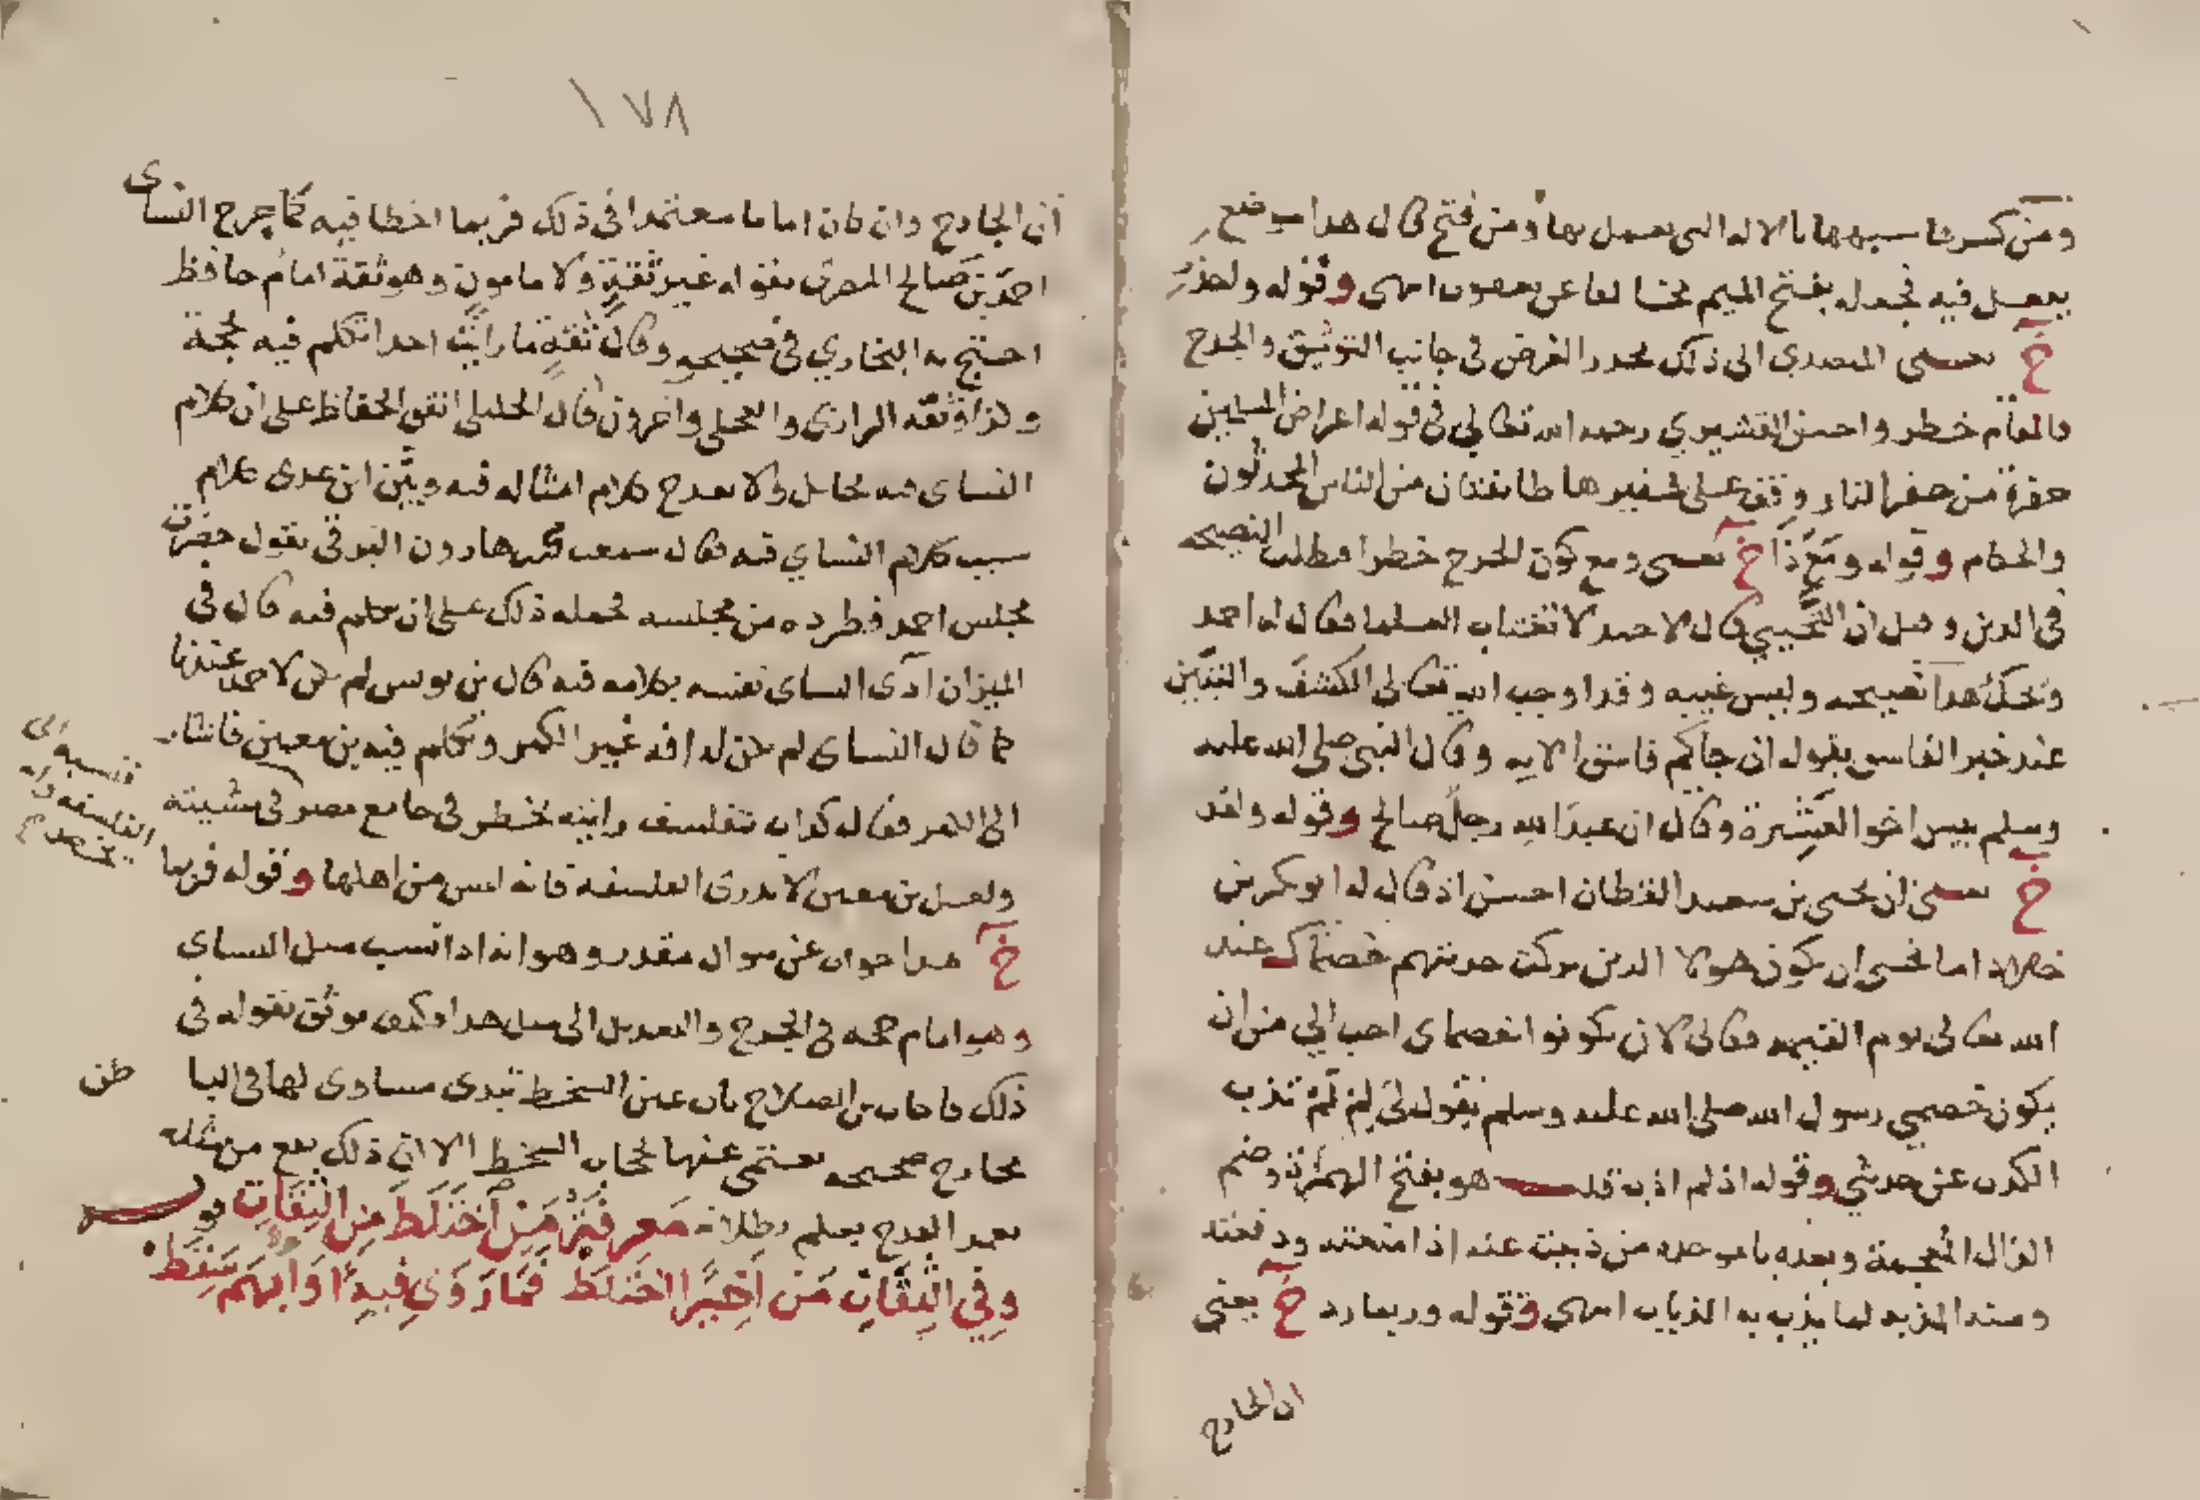 ومن كسرها شبهها بالالة التي يعمل بها ومن فتح قال هذا موضع
يعمل فيه فجعله بفتح الميم مخالفا عن يعقوب انتهى وقوله واحذر
خ يعني المتصدي الى ذلك يحذر الغرض في جانب التوثيق والجرح
فالمقام خطر واحسن القشيري رحمه الله تعالى في قوله اعراض المسلمين
حفرة من حفر النار وقف على شفيرها طايفتان من الناس المحدثون
والحكام وقوله ومع ذا خ يعني ومع كون الجرح خطرا فطلب النصيحه
في الدين وقيل ان النخشبي قال لاحمد لا تغتاب العلما فقال له احمد
ويحك هذا نصيحه وليس غيبه وقد اوجب الله تعالى الكشف والتبيين
عند خبر الفاسق بقوله ان جاكم فاسق الايه وقال النبي صلى الله عليه
وسلم بيس اخو العشيرة وقال ان عبد الله رجل صالح وقوله ولقد
خ يعني ان يحيى بن سعيد القطان احسن اذ قال له ابو بكر بن
خلاد اما تخشى ان يكون هولا الذين تركت حديثهم خصماك عند
الله تعالى يوم القيمه فقال لان يكونوا خصماى احب الي من ان
يكون خصمي رسول الله صلى الله عليه وسلم بقوله لي لم لم تذب
الكذب عن حديثي وقوله اذ لم اذب قلت هو بفتح الهمزة وضم
الذال المعجمة وبعده باموحده من ذببت عنه اذا منعته ودفعته
ومنه المذبه لما يذب به الذباب انتهى وقوله وربما رد خ يعني
ان الجارح
١٧٨
ان الجارح وان كان اماما معتمدا في ذلك فربما اخطا فيه كما جرح النساى
احمد بن صالح المصرى بقوله غير ثقة ولا مامون وهو ثقة امام حافظ
احتج به البخاري في صحيحه وقال ثقة ما رايت احدا تكلم فيه بحجة
وكذا وثقه الرازى والعجلى واخرون قال الخليلى اتفق الحفاظ على ان كلام
النساى فيه تحامل ولا يقدح كلام امثاله فيه وبين ابن عدى كلام
سبب كلام النساي فيه فقال سمعت محمد بن هارون البرقى يقول حضرت
مجلس احمد فطرده من مجلسه فحمله ذلك على ان تكلم فيه قال في
الميزان اذى النساى نفسه بكلامه فيه قال بن يونس لم يكن لاحمد عندنا
كما قال النساى لم يكن له افه غير الكبر وتكلم فيه بن معين فاشار
الى الكبر فقال كذاب يتفلسف رايته يخطر في جامع مصر في مشيته
فنسبه الى
الفلسفه وانه
ولعل بن معين لا يدرى الفلسفه فانه ليس من اهلها وقوله فربما
خ هذا جواب عن سوال مقدر وهو انه اذا نسب مثل النساى
وهو امام حجه في الجرح والتعديل الى مثل هذا فكيف يوثق بقوله في
ذلك فاجاب بن الصلاح بان عين السخط تبدى مساوى لها في البا طن
مخارج صحيحه تعمى عنها بحجاب السخط الا ان ذلك يقع من مثله
تعمد القدح يعلم بطلانه معرفة من اختلط من الثقات قوله
وفي الثقات من اخيرا اختلط فما روى فيه او ابهم سقط